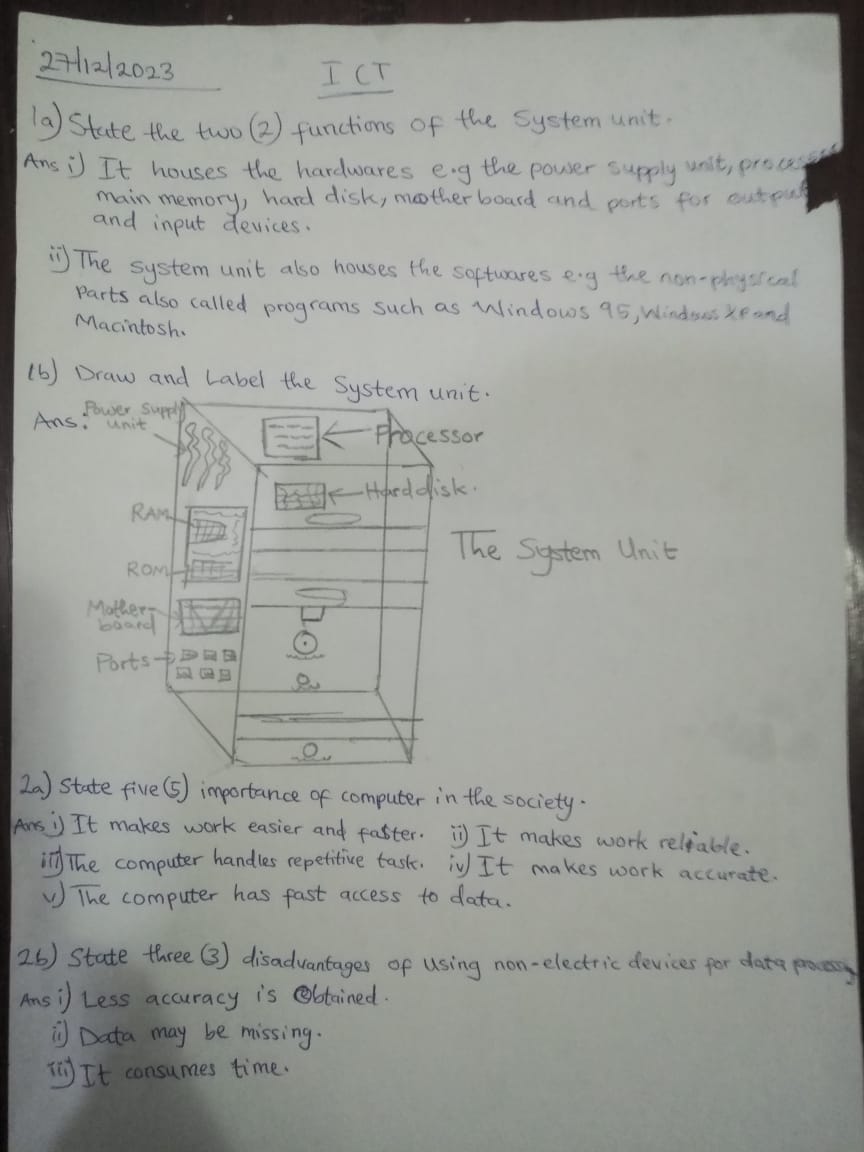 27/12/2023
ICT
1a) State the two (2) functions of the System unit.
Ans i) It houses the hardwares e.g the power supply unit,
main memory, hard disk, motherboard and ports for output
and input devices.
ii) The system unit also houses the softwares e.g the non-physical
Parts also called programs such as Windows 95, Windows XP and
Macintosh.
1b) Draw and Label the System unit.
Ans: Power Supply
unit
Processor
Harddisk.
RAM
The System Unit
ROM
Mother-
board
Ports
2a) State five (5) importance of computer in the society.
Ans i) It makes work easier and faster. ii) It makes work reliable.
iii) The computer handles repetitive task. iv) It makes work accurate.
v) The computer has fast access to data.
2b) State three (3) disadvantages of using non-electric devices for data
Ans i) Less accuracy is Obtained.
ii) Data may be missing.
iii) It consumes time.